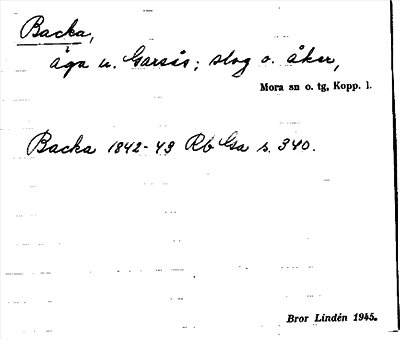 Backa,
äga u. Garsås; slog o. åker,
Mora sn o. tg, Kopp. l.
Backa 1842-43 Rb Gsa s. 340.
Bror Lindén 1945.